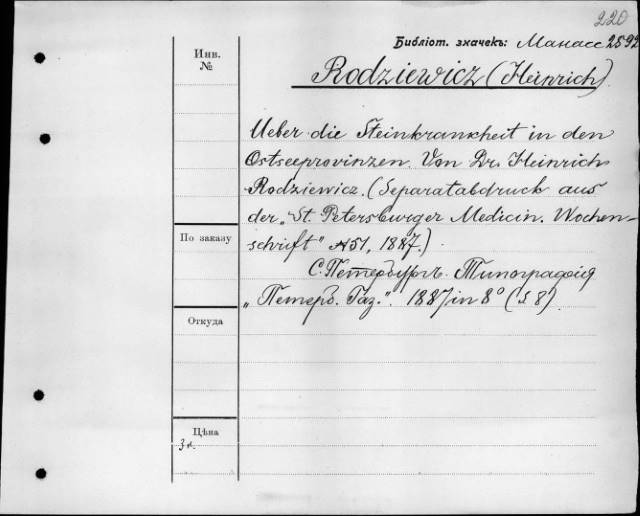 220
Библіот. значекъ: Манасс 2592
Инв.
№
Rodziewicz (Heinrich).
Ueber die Steinkrankheit in den
Ostseeprovinzen. Von Dr. Heinrich
Rodziewicz. (Separatabdruck aus
der „St. Petersburger Medicin. Wochen-
schrift" №51, 1887.)
По заказу
С. Петербургъ. Типографія
„Петерб. Газ.". 1887 in 8° (S 8).
Откуда
Цѣна
3 к.